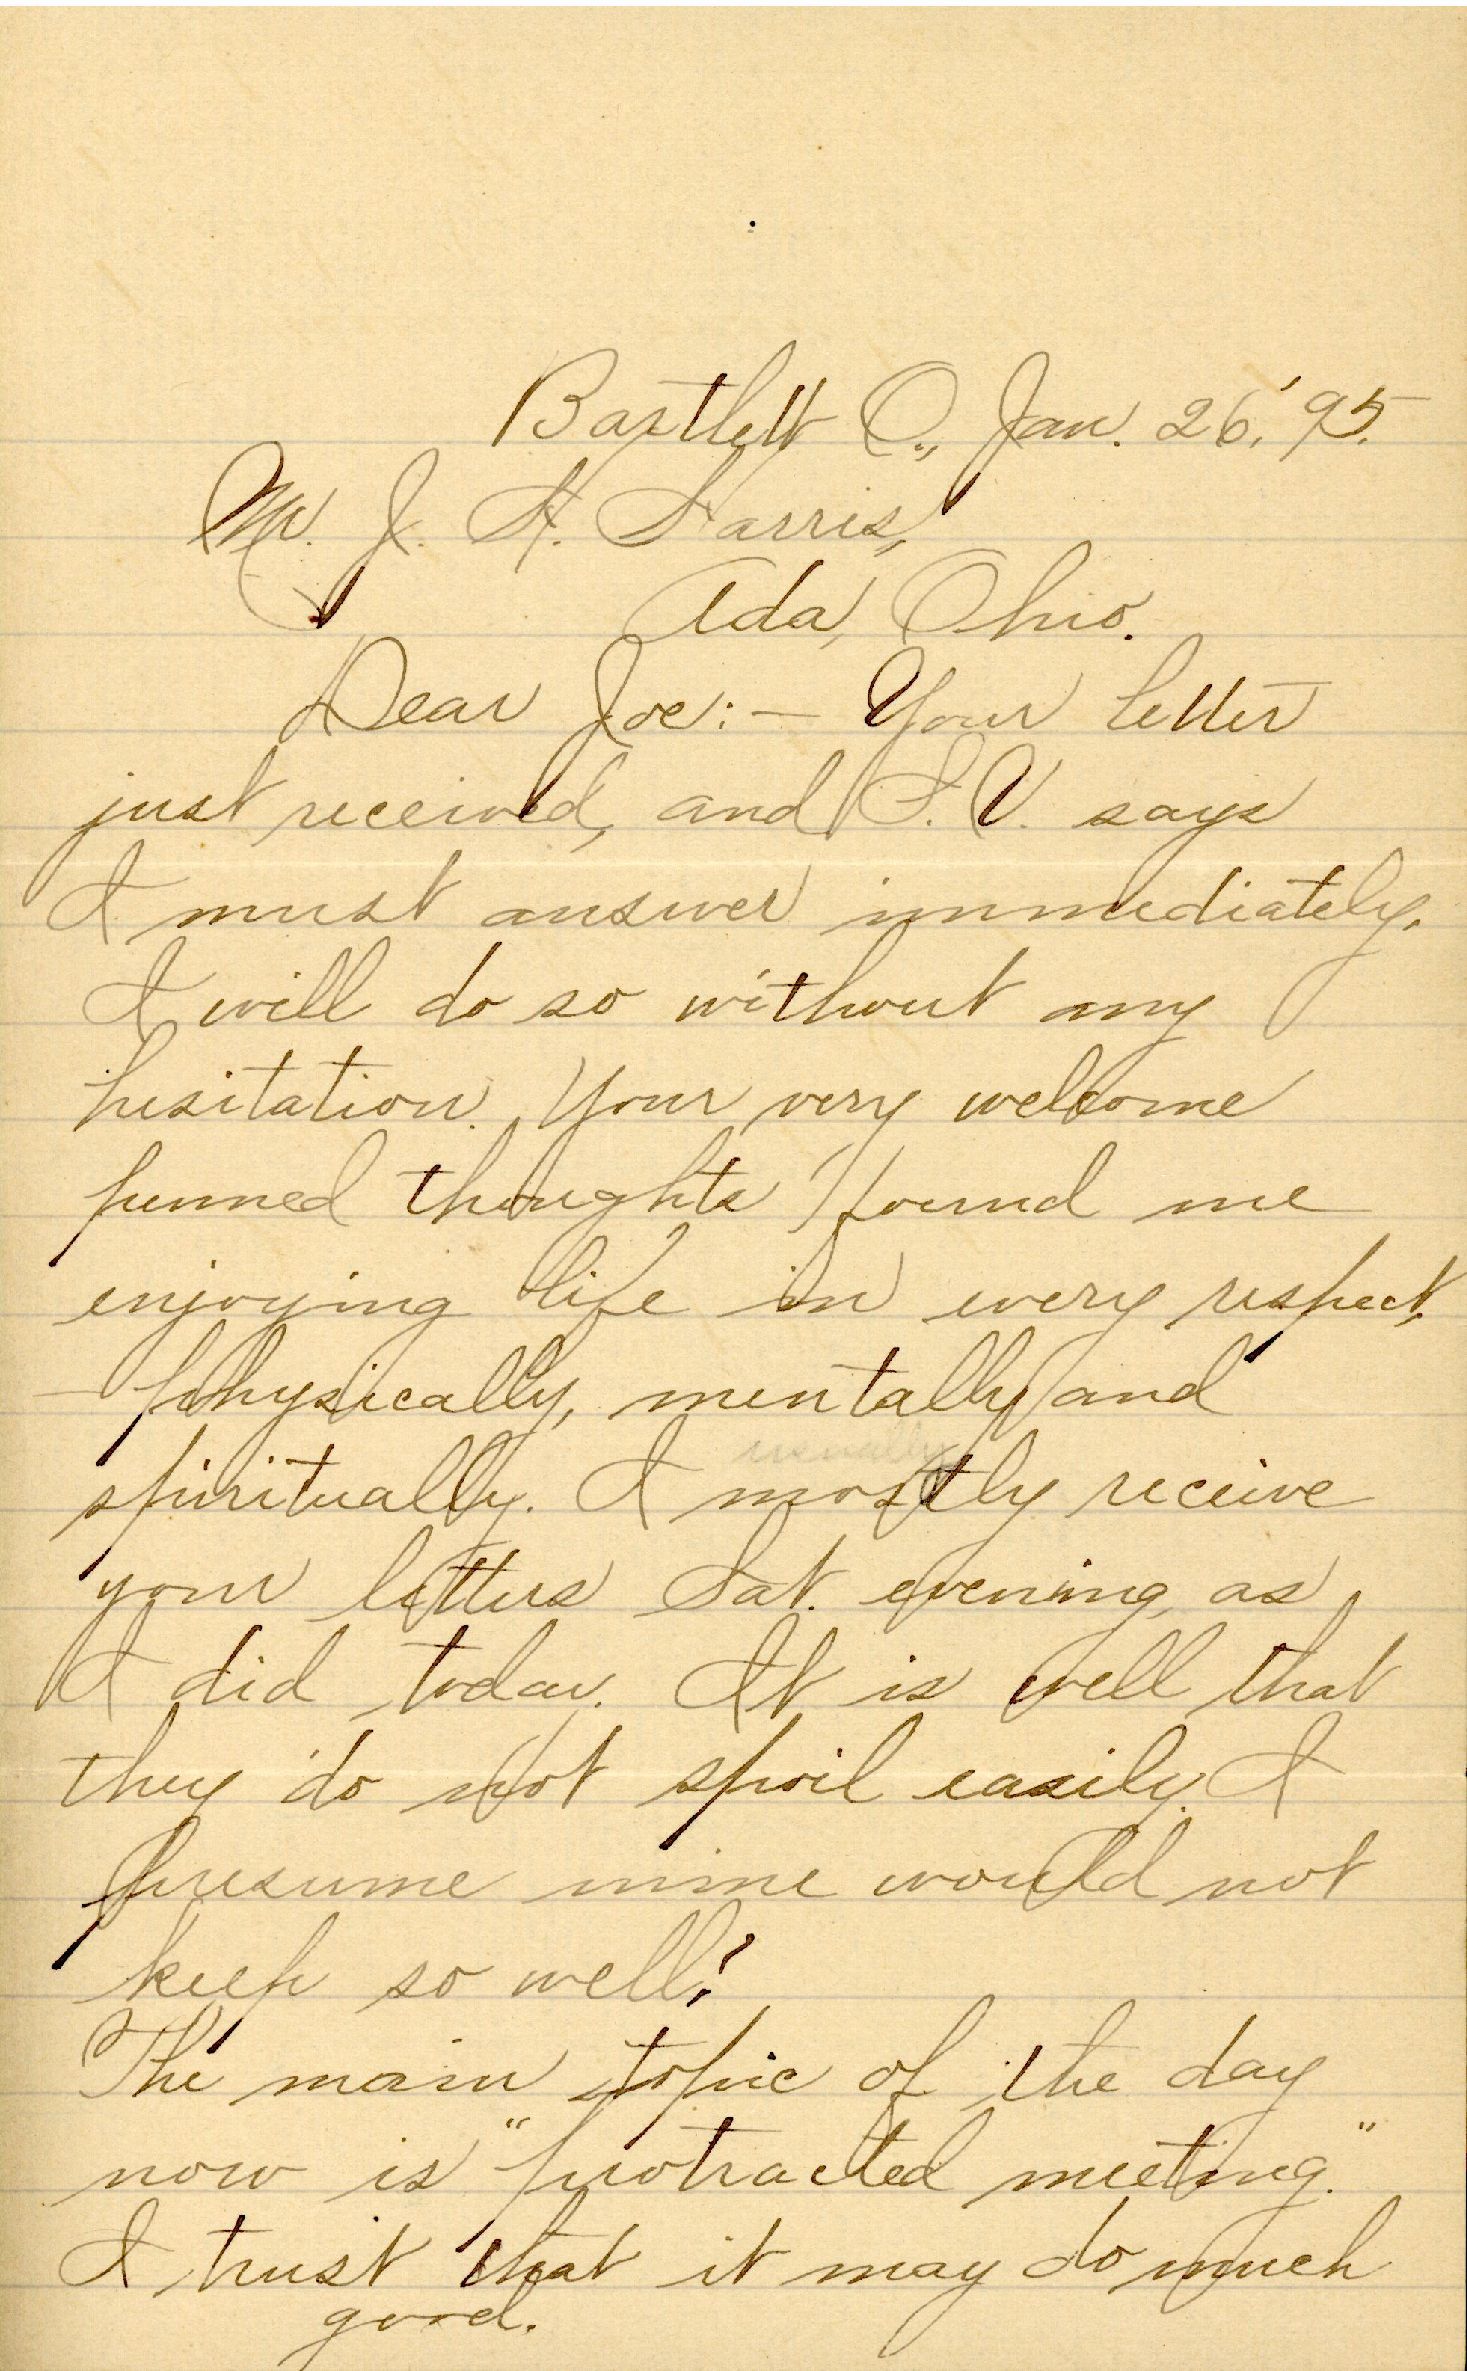 Bartlett O., Jan. 26, '95.
Mr. J. H. Harris,
Ada, Ohio.
Dear Joe:— Your letter
just received, and S.V. says
I must answer immediately.
I will do so without any
hesitation. Your very welcome
penned thoughts found me
enjoying life in every respect,
—physically, mentally and
usually
spiritually. I mostly receive
your letters Sat. evening, as
I did today. It is well that
they do not spoil easily. I
presume mine would not
keep so well!
The main topic of the day
now is "protracted meeting."
I trust that it may do much
good.